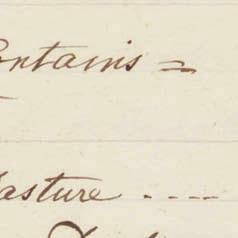 Contains =
Pasture ----